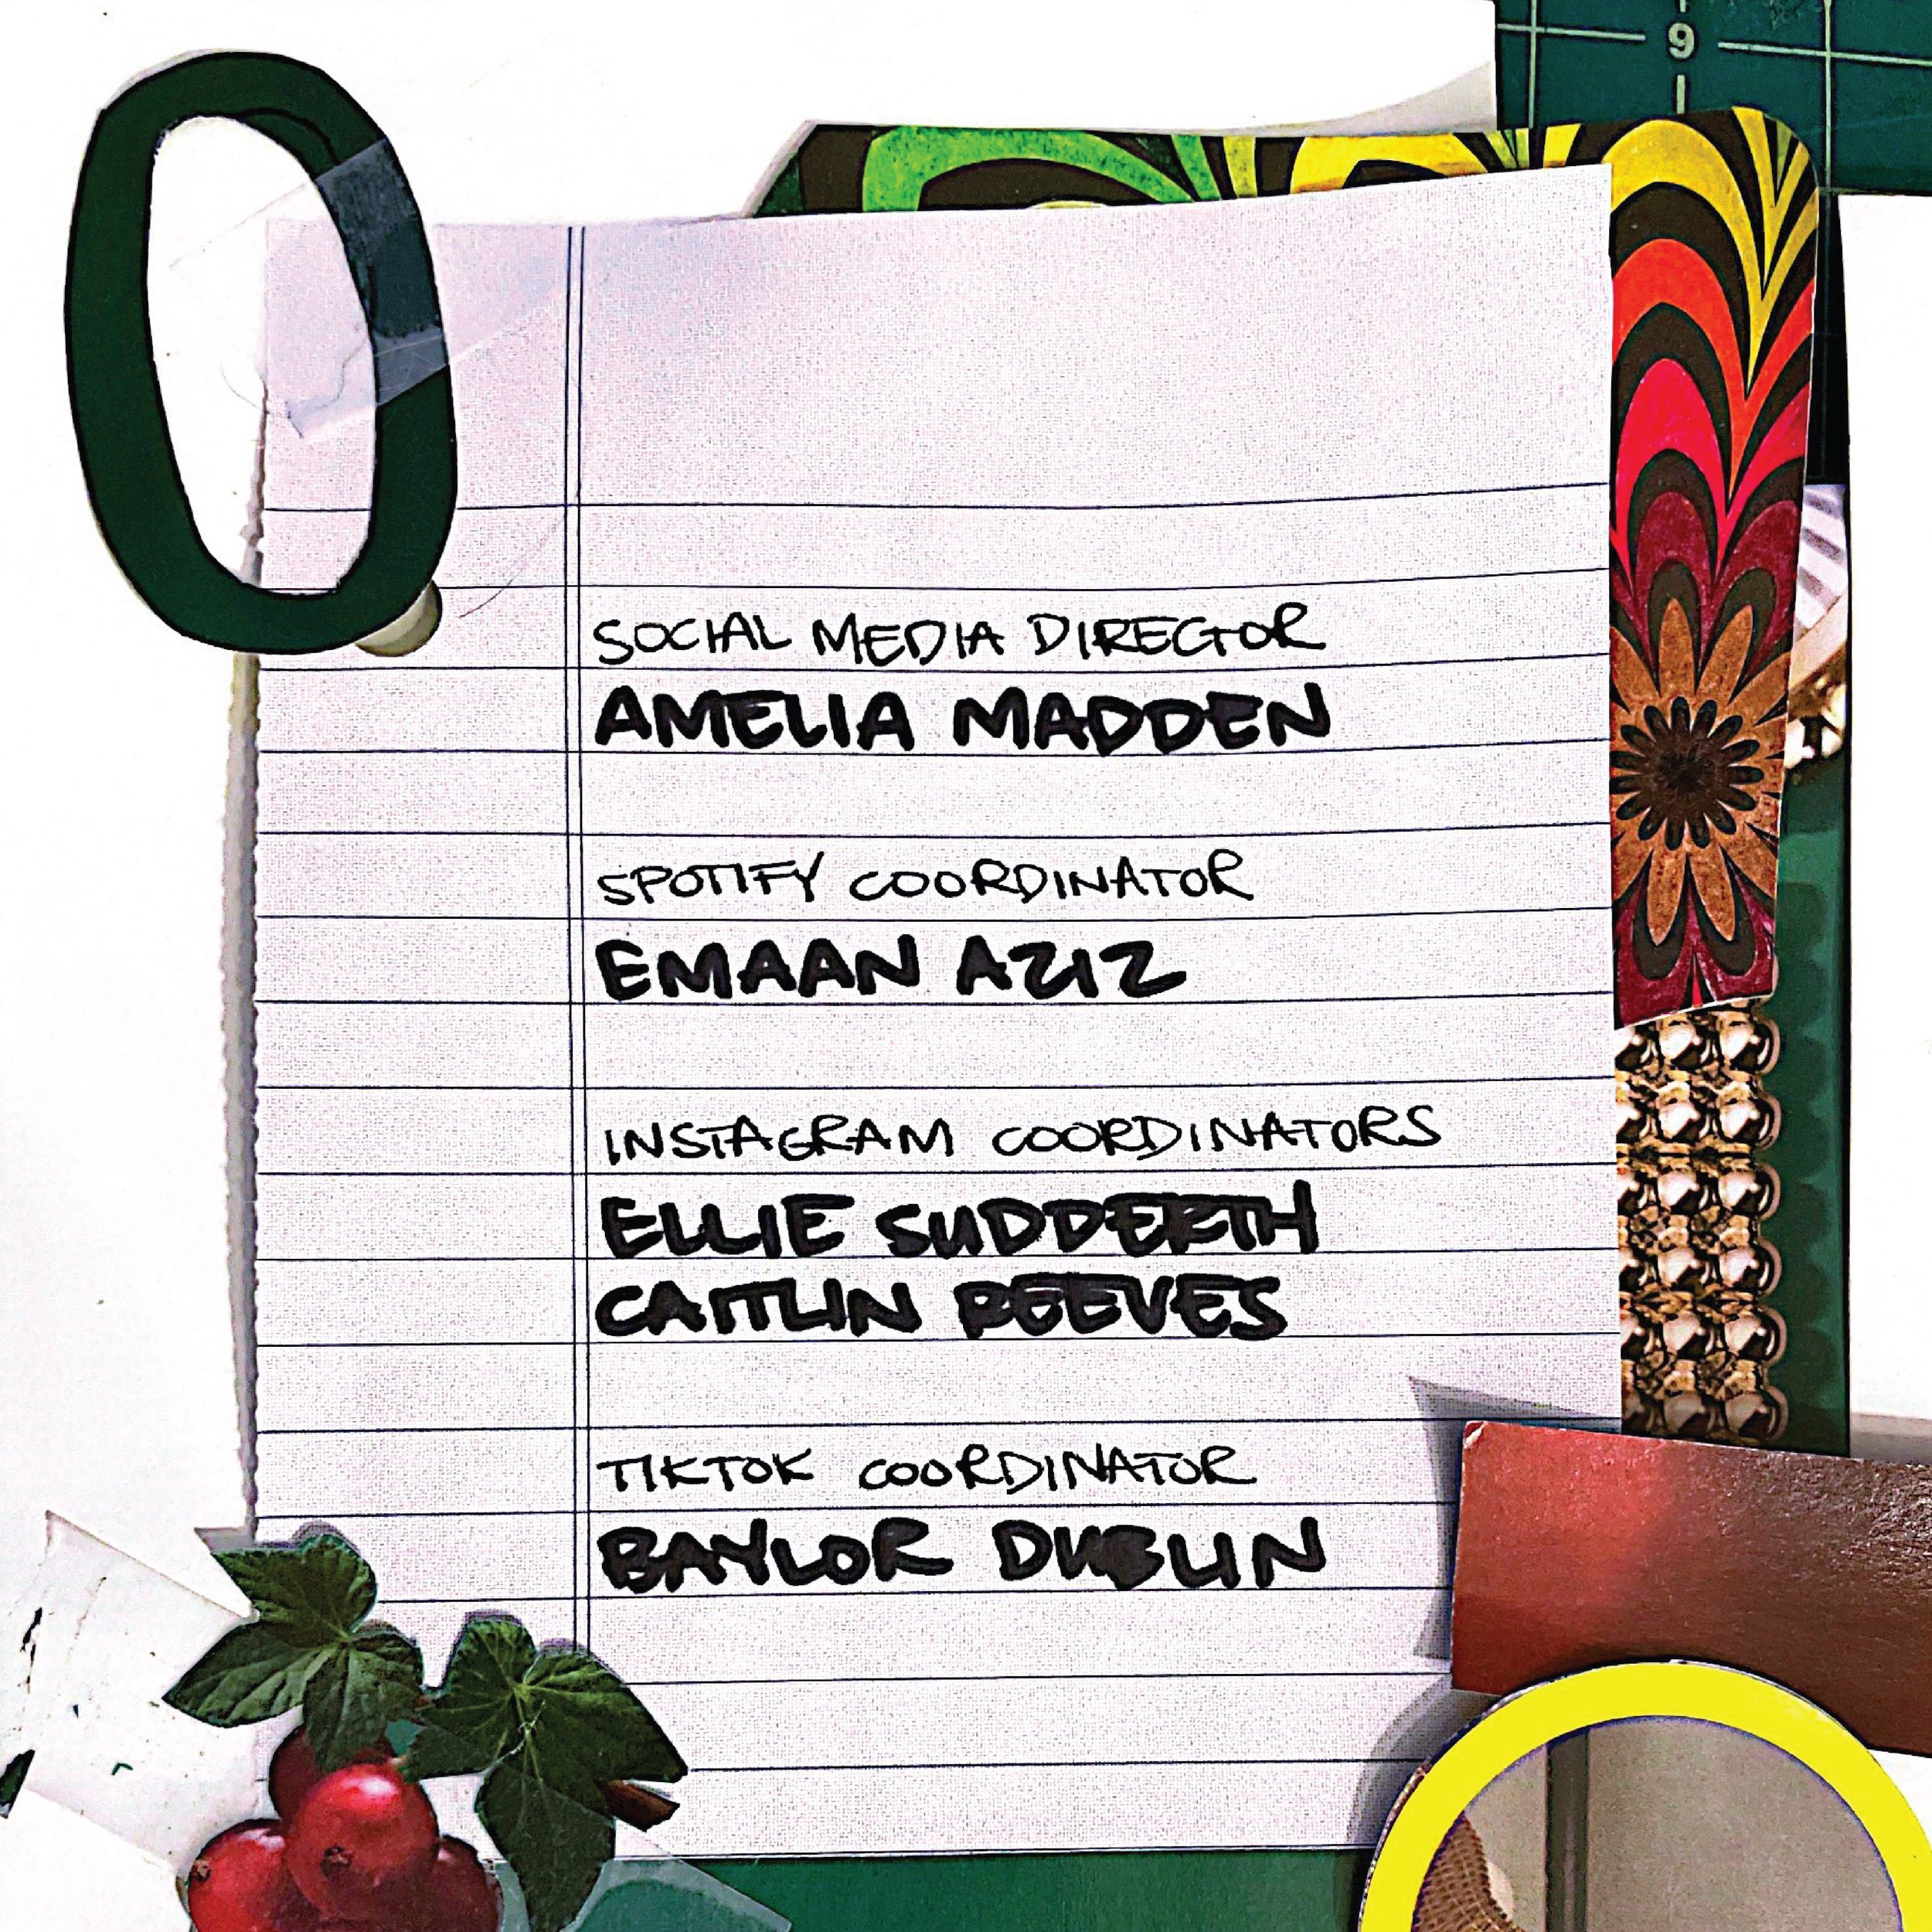 9
0
SOCIAL MEDIA DIRECTOR
AMELIA MADDEN
SPOTIFY COORDINATOR
EMAAN AZIZ
INSTAGRAM COORDINATORS
ELLIE SUDDERTH
CAITLIN REEVES
TIKTOK COORDINATOR
BAYLOR DUBLIN